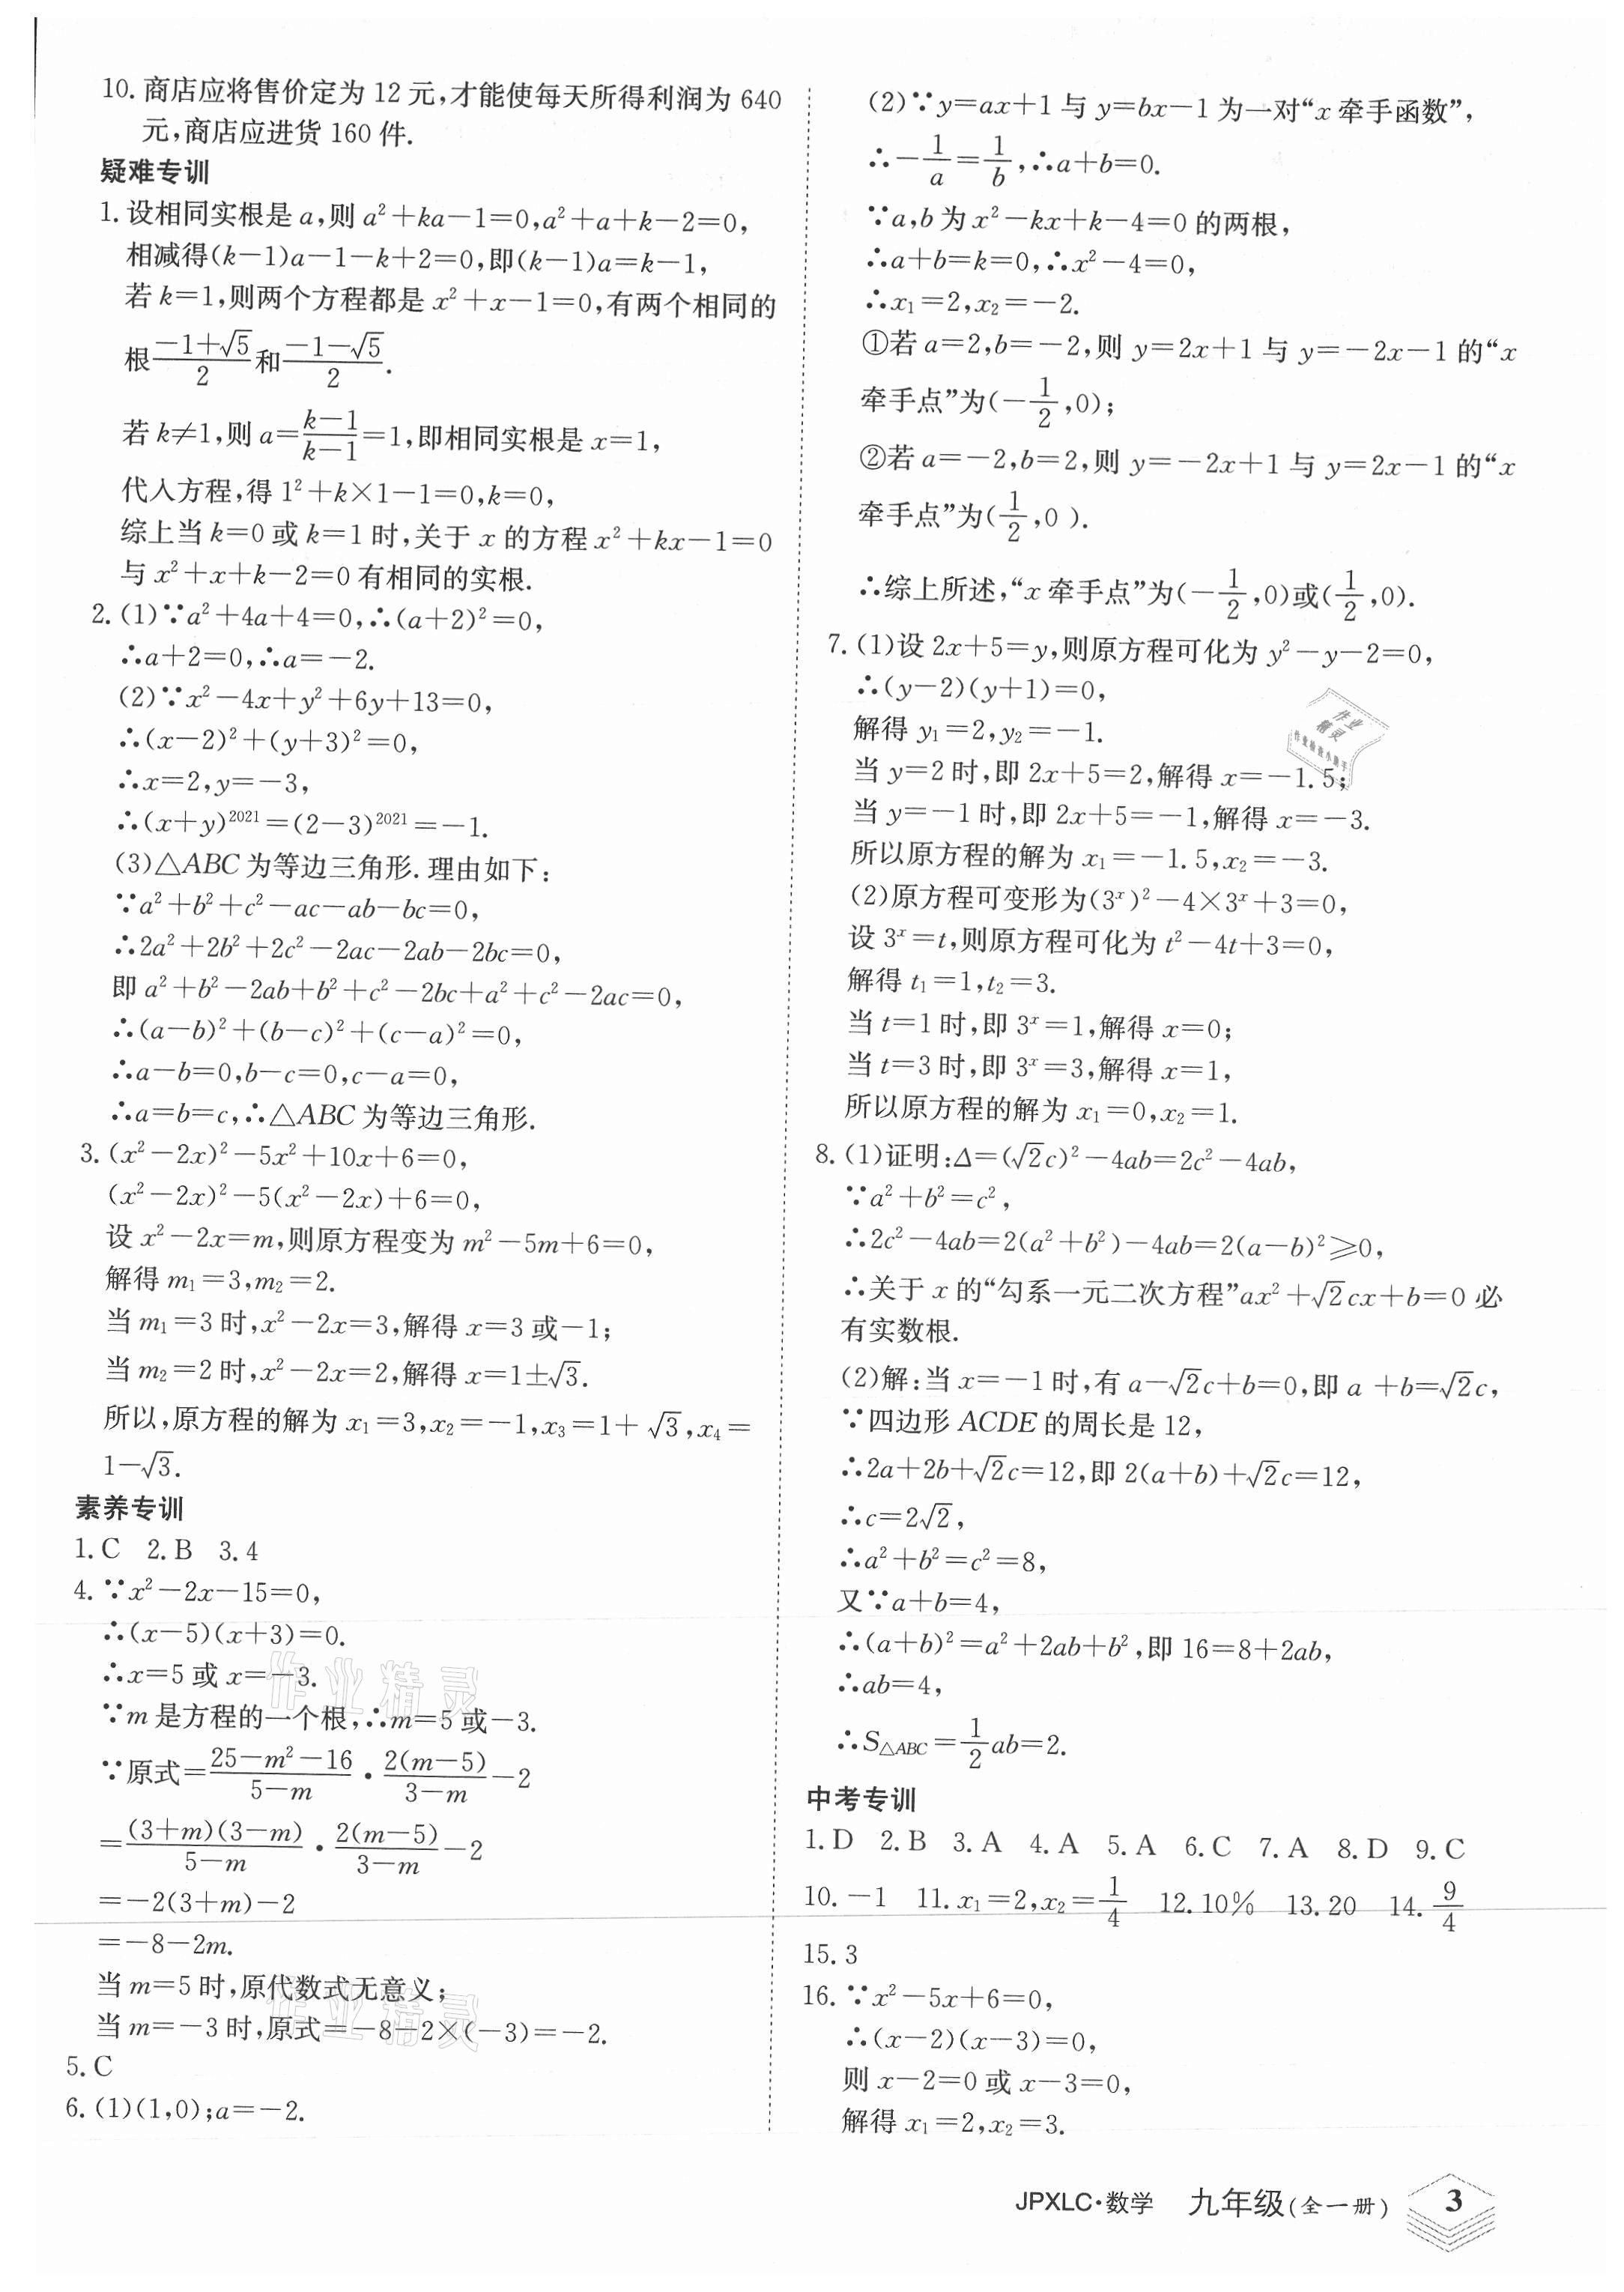 10. 商店应将售价定为 12 元,才能使每天所得利润为 640
元,商店应进货 160 件.
疑难专训
1. 设相同实根是 a,则 a²+ka−1=0,a²+a+k−2=0,
相减得(k−1)a−1−k+2=0,即(k−1)a=k−1,
若 k=1,则两个方程都是 x²+x−1=0,有两个相同的
根(−1+√5)/2 和 (−1−√5)/2.
若 k≠1,则 a=(k−1)/(k−1)=1,即相同实根是 x=1,
代入方程,得 1²+k×1−1=0,k=0,
综上当 k=0 或 k=1 时,关于 x 的方程 x²+kx−1=0
与 x²+x+k−2=0 有相同的实根.
2. (1)∵a²+4a+4=0,∴(a+2)²=0,
∴a+2=0,∴a=−2.
(2)∵x²−4x+y²+6y+13=0,
∴(x−2)²+(y+3)²=0,
∴x=2,y=−3,
∴(x+y)²⁰²¹=(2−3)²⁰²¹=−1.
(3)△ABC 为等边三角形. 理由如下:
∵a²+b²+c²−ac−ab−bc=0,
∴2a²+2b²+2c²−2ac−2ab−2bc=0,
即 a²+b²−2ab+b²+c²−2bc+a²+c²−2ac=0,
∴(a−b)²+(b−c)²+(c−a)²=0,
∴a−b=0,b−c=0,c−a=0,
∴a=b=c,∴△ABC 为等边三角形.
3. (x²−2x)²−5x²+10x+6=0,
(x²−2x)²−5(x²−2x)+6=0,
设 x²−2x=m,则原方程变为 m²−5m+6=0,
解得 m₁=3,m₂=2.
当 m₁=3 时,x²−2x=3,解得 x=3 或−1;
当 m₂=2 时,x²−2x=2,解得 x=1±√3.
所以,原方程的解为 x₁=3,x₂=−1,x₃=1+√3,x₄=
1−√3.
素养专训
1. C 2. B 3. 4
4. ∵x²−2x−15=0,
∴(x−5)(x+3)=0.
∴x=5 或 x=−3.
∵m 是方程的一个根,∴m=5 或−3.
∵原式=(25−m²−16)/(5−m)·2(m−5)/(3−m)−2
=(3+m)(3−m)/(5−m)·2(m−5)/(3−m)−2
=−2(3+m)−2
=−8−2m.
当 m=5 时,原代数式无意义;
当 m=−3 时,原式=−8−2×(−3)=−2.
5. C
6. (1)(1,0);a=−2.
(2)∵y=ax+1 与 y=bx−1 为一对“x 牵手函数”,
∴−1/a=1/b,∴a+b=0.
∵a,b 为 x²−kx+k−4=0 的两根,
∴a+b=k=0,∴x²−4=0,
∴x₁=2,x₂=−2.
①若 a=2,b=−2,则 y=2x+1 与 y=−2x−1 的“x
牵手点”为(−1/2,0);
②若 a=−2,b=2,则 y=−2x+1 与 y=2x−1 的“x
牵手点”为(1/2,0 ).
∴综上所述,“x 牵手点”为(−1/2,0)或(1/2,0).
7. (1)设 2x+5=y,则原方程可化为 y²−y−2=0,
∴(y−2)(y+1)=0,
解得 y₁=2,y₂=−1.
当 y=2 时,即 2x+5=2,解得 x=−1.5;
当 y=−1 时,即 2x+5=−1,解得 x=−3.
所以原方程的解为 x₁=−1.5,x₂=−3.
(2)原方程可变形为(3ˣ)²−4×3ˣ+3=0,
设 3ˣ=t,则原方程可化为 t²−4t+3=0,
解得 t₁=1,t₂=3.
当 t=1 时,即 3ˣ=1,解得 x=0;
当 t=3 时,即 3ˣ=3,解得 x=1,
所以原方程的解为 x₁=0,x₂=1.
8. (1)证明:Δ=(√2c)²−4ab=2c²−4ab,
∵a²+b²=c²,
∴2c²−4ab=2(a²+b²)−4ab=2(a−b)²⩾0,
∴关于 x 的“勾系一元二次方程”ax²+√2cx+b=0 必
有实数根.
(2)解:当 x=−1 时,有 a−√2c+b=0,即 a +b=√2c,
∵四边形 ACDE 的周长是 12,
∴2a+2b+√2c=12,即 2(a+b)+√2c=12,
∴c=2√2,
∴a²+b²=c²=8,
又∵a+b=4,
∴(a+b)²=a²+2ab+b²,即 16=8+2ab,
∴ab=4,
∴S△ABC=1/2ab=2.
中考专训
1. D 2. B 3. A 4. A 5. A 6. C 7. A 8. D 9. C
10. −1 11. x₁=2,x₂=1/4 12. 10% 13. 20 14. 9/4
15. 3
16. ∵x²−5x+6=0,
∴(x−2)(x−3)=0,
则 x−2=0 或 x−3=0,
解得 x₁=2,x₂=3.
作业精灵
作业精灵
作业
精灵
JPXLC·数学 九年级(全一册) 3